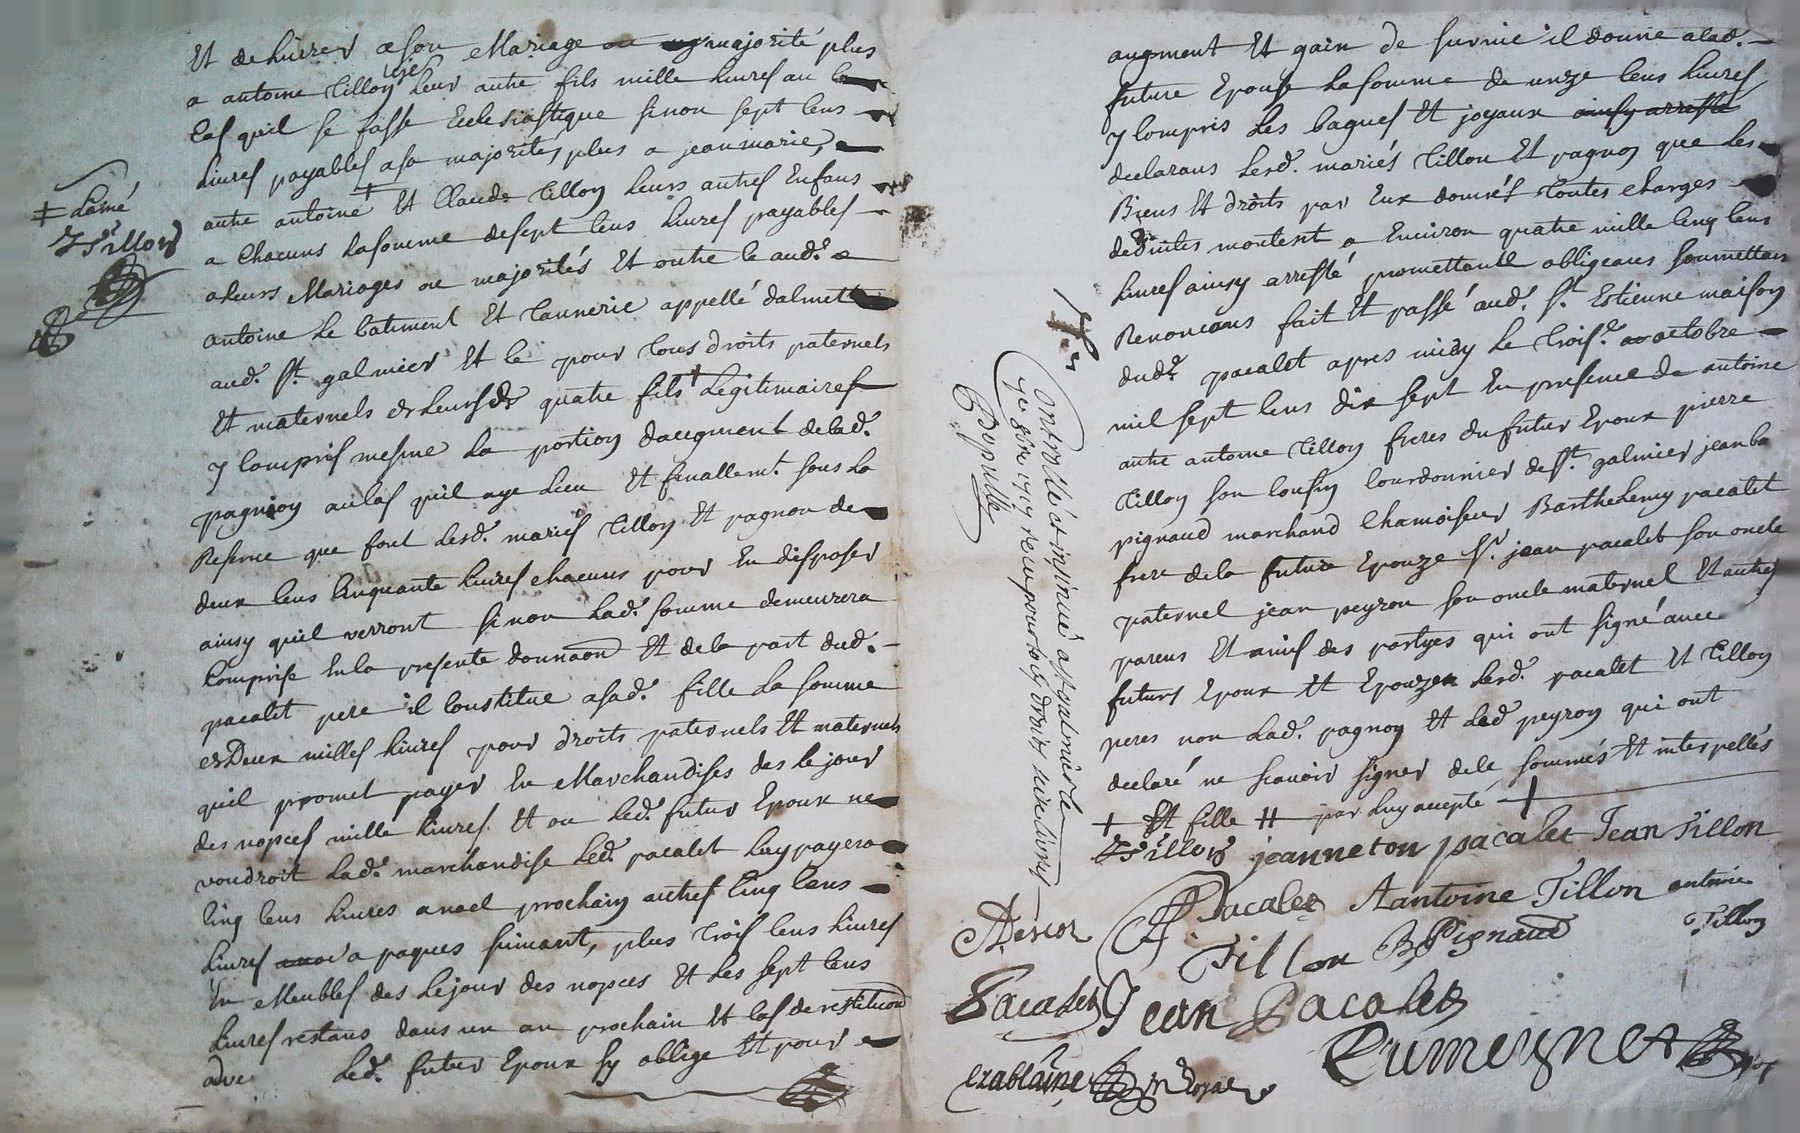 Et de livres a son Mariage ou majorité plus
a antoine Tillon jeje leur autre fils mille livres au
Cas quil se fasse Ecclesiastique sinon sept Cens
livres payables a sa majorités plus a jean marie,
autre antoine ǂ Et Claude Tillon leurs autres Enfans
a Chacuns la somme de sept Cens livres payables
a leurs Mariages ou majorités Et outre le aud. a
antoine le batiment Et Tannerie appellé dalmett
aud. St. galmier Et le pour tous droits paternels
Et maternels de leurs d. quatre fils + Legitimaires
y Compris mesme la portion daugment de lad.
pagnion au Cas quil aye lieu Et finallemt. sous la
Reserve que font lesd. mariés Tillon Et pagnon de
deux Cens Cinquante livres chacuns pour En disposer
ainsy quil verront sinon lad. somme demeurera
Comprise En la presente donnaon Et de la part dud.
pacalet pere il Constitue a sad. fille la somme
de Deux milles livres pour droits paternels Et maternels
quil promet payer En Marchandises des le jour
des nopces mille livres Et ou led. futur Epoux ne
voudroit lad. marchandise led. pacalet luy payera
Cinq Cens livres a noel prochain autres Cinq Cens
livres a paques suivant, plus trois Cens livres
En Meubles des le jour des nopces Et les sept Cens
livres restans dans un an prochain Et Cas de restituon
adve led. futur Epoux sy oblige Et pour
ǂ Lainé
Tillon
augment Et gain de survie il donne a lad.
future Epouse la somme de unze Cens livres
y Compris les bagues Et joyaux ainsy arresté
declarans lesd. mariés Tillon Et pagnon que les
Biens Et droits par Eux donnés toutes charges
deduites montent a Environ quatre mille Cinq Cens
livres ainsy arresté promettant obligeans soumettans
Renoncans fait Et passé aud. St. Estienne maison
dudt. pacalet apres midy le troise. octobre
mil sept Cens dix sept En presence de antoine
autre antoine Tillon freres du futur Epoux pierre
Tillon son Cousin Courdonnier de St. galmier jean ba
pignaud marchand Chamoiseur Barthelemy pacalet
frere de la future Epouze Sr. jean pacalet son oncle
paternel jean peyron son oncle maternel Et autres
parens Et amis des partyes qui ont signé avec
futurs Epoux Et Epouzee lesd. pacalet Et Tillon
peres non lad. pagnon Et led. peyron qui ont
declaré ne scavoir signer de ce sommés Et interpellés
+ Et fille ǂ par luy accepté +
Tillon jeanneton pacalet Jean Tillon
Pacalet Aantoine Tillon antoine
Tillon
Tillon B Pignaud
Pacalet Jean Pacalet
Controllé et insinué a St galmier le
9e 8bre 1717 receu pour tous droits seize livres